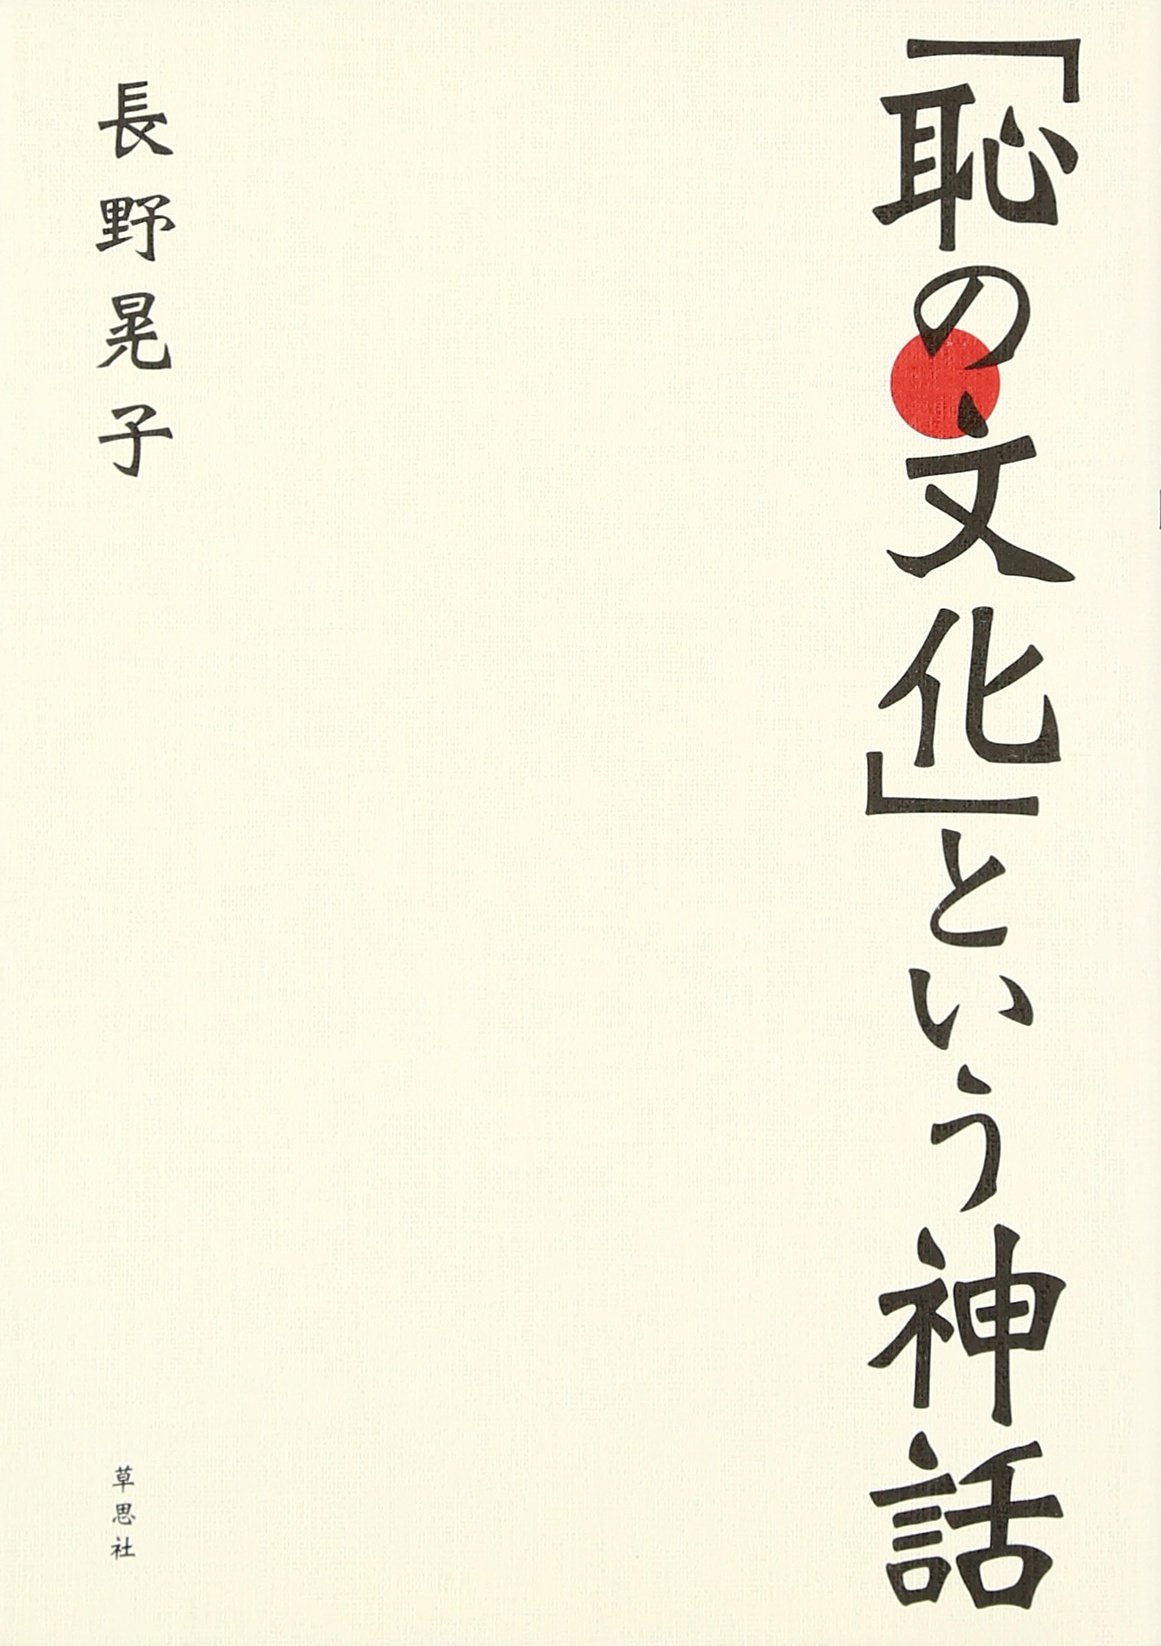 「恥の文化」という神話
長野晃子
草思社